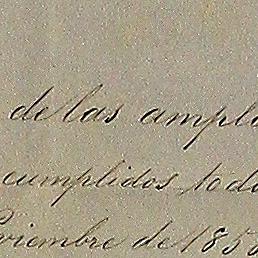 de las ampl
cumplidos tod
viembre de 185